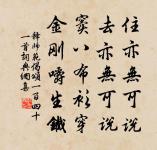 住亦無可說
去亦無可說
窦八布衫穿
金剛嚼生鐵
釋師範偈頌一百四十
一首詞典網喜